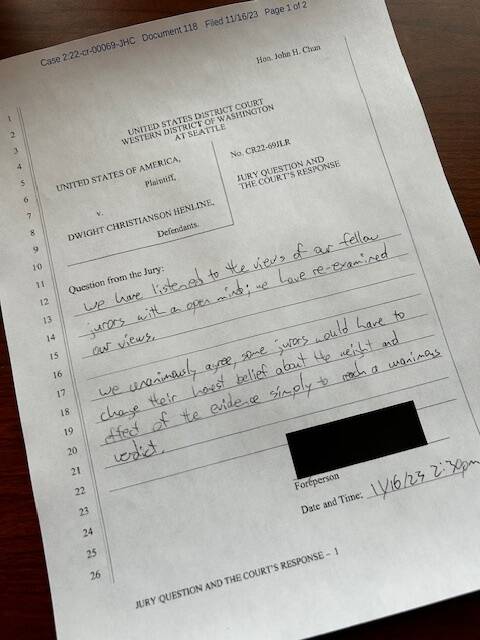 Case 2:22-cr-00069-JHC Document 118 Filed 11/16/23 Page 1 of 2
Hon. John H. Chun
1
2
3
4
5
6
7
8
9
10
11
12
13
14
15
16
17
18
19
20
21
22
23
24
25
26
UNITED STATES DISTRICT COURT
WESTERN DISTRICT OF WASHINGTON
AT SEATTLE
UNITED STATES OF AMERICA,
Plaintiff,
v.
DWIGHT CHRISTIANSON HENLINE,
Defendants.
No. CR22-69JLR
JURY QUESTION AND
THE COURT'S RESPONSE
Question from the Jury:
We have listened to the views of our fellow
jurors with an open mind; we have re-examined
our views.
We unanimously agree, some jurors would have to
change their honest belief about the weight and
effect of the evidence simply to reach a unanimous
verdict.
Foreperson
Date and Time: 11/16/23 2:30pm
JURY QUESTION AND THE COURT'S RESPONSE – 1